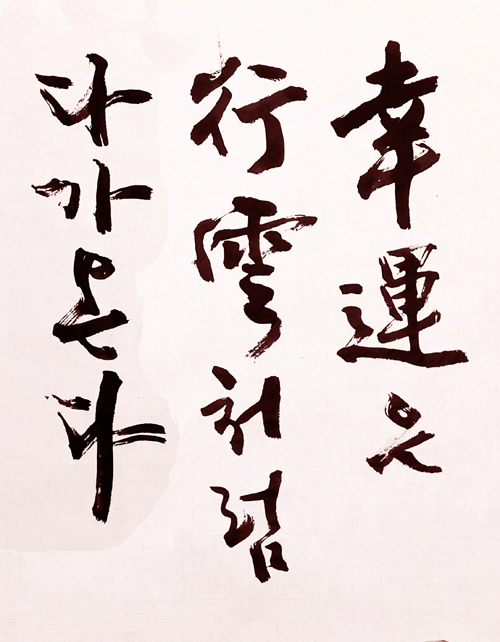 幸運은
行雲처럼
다가온다